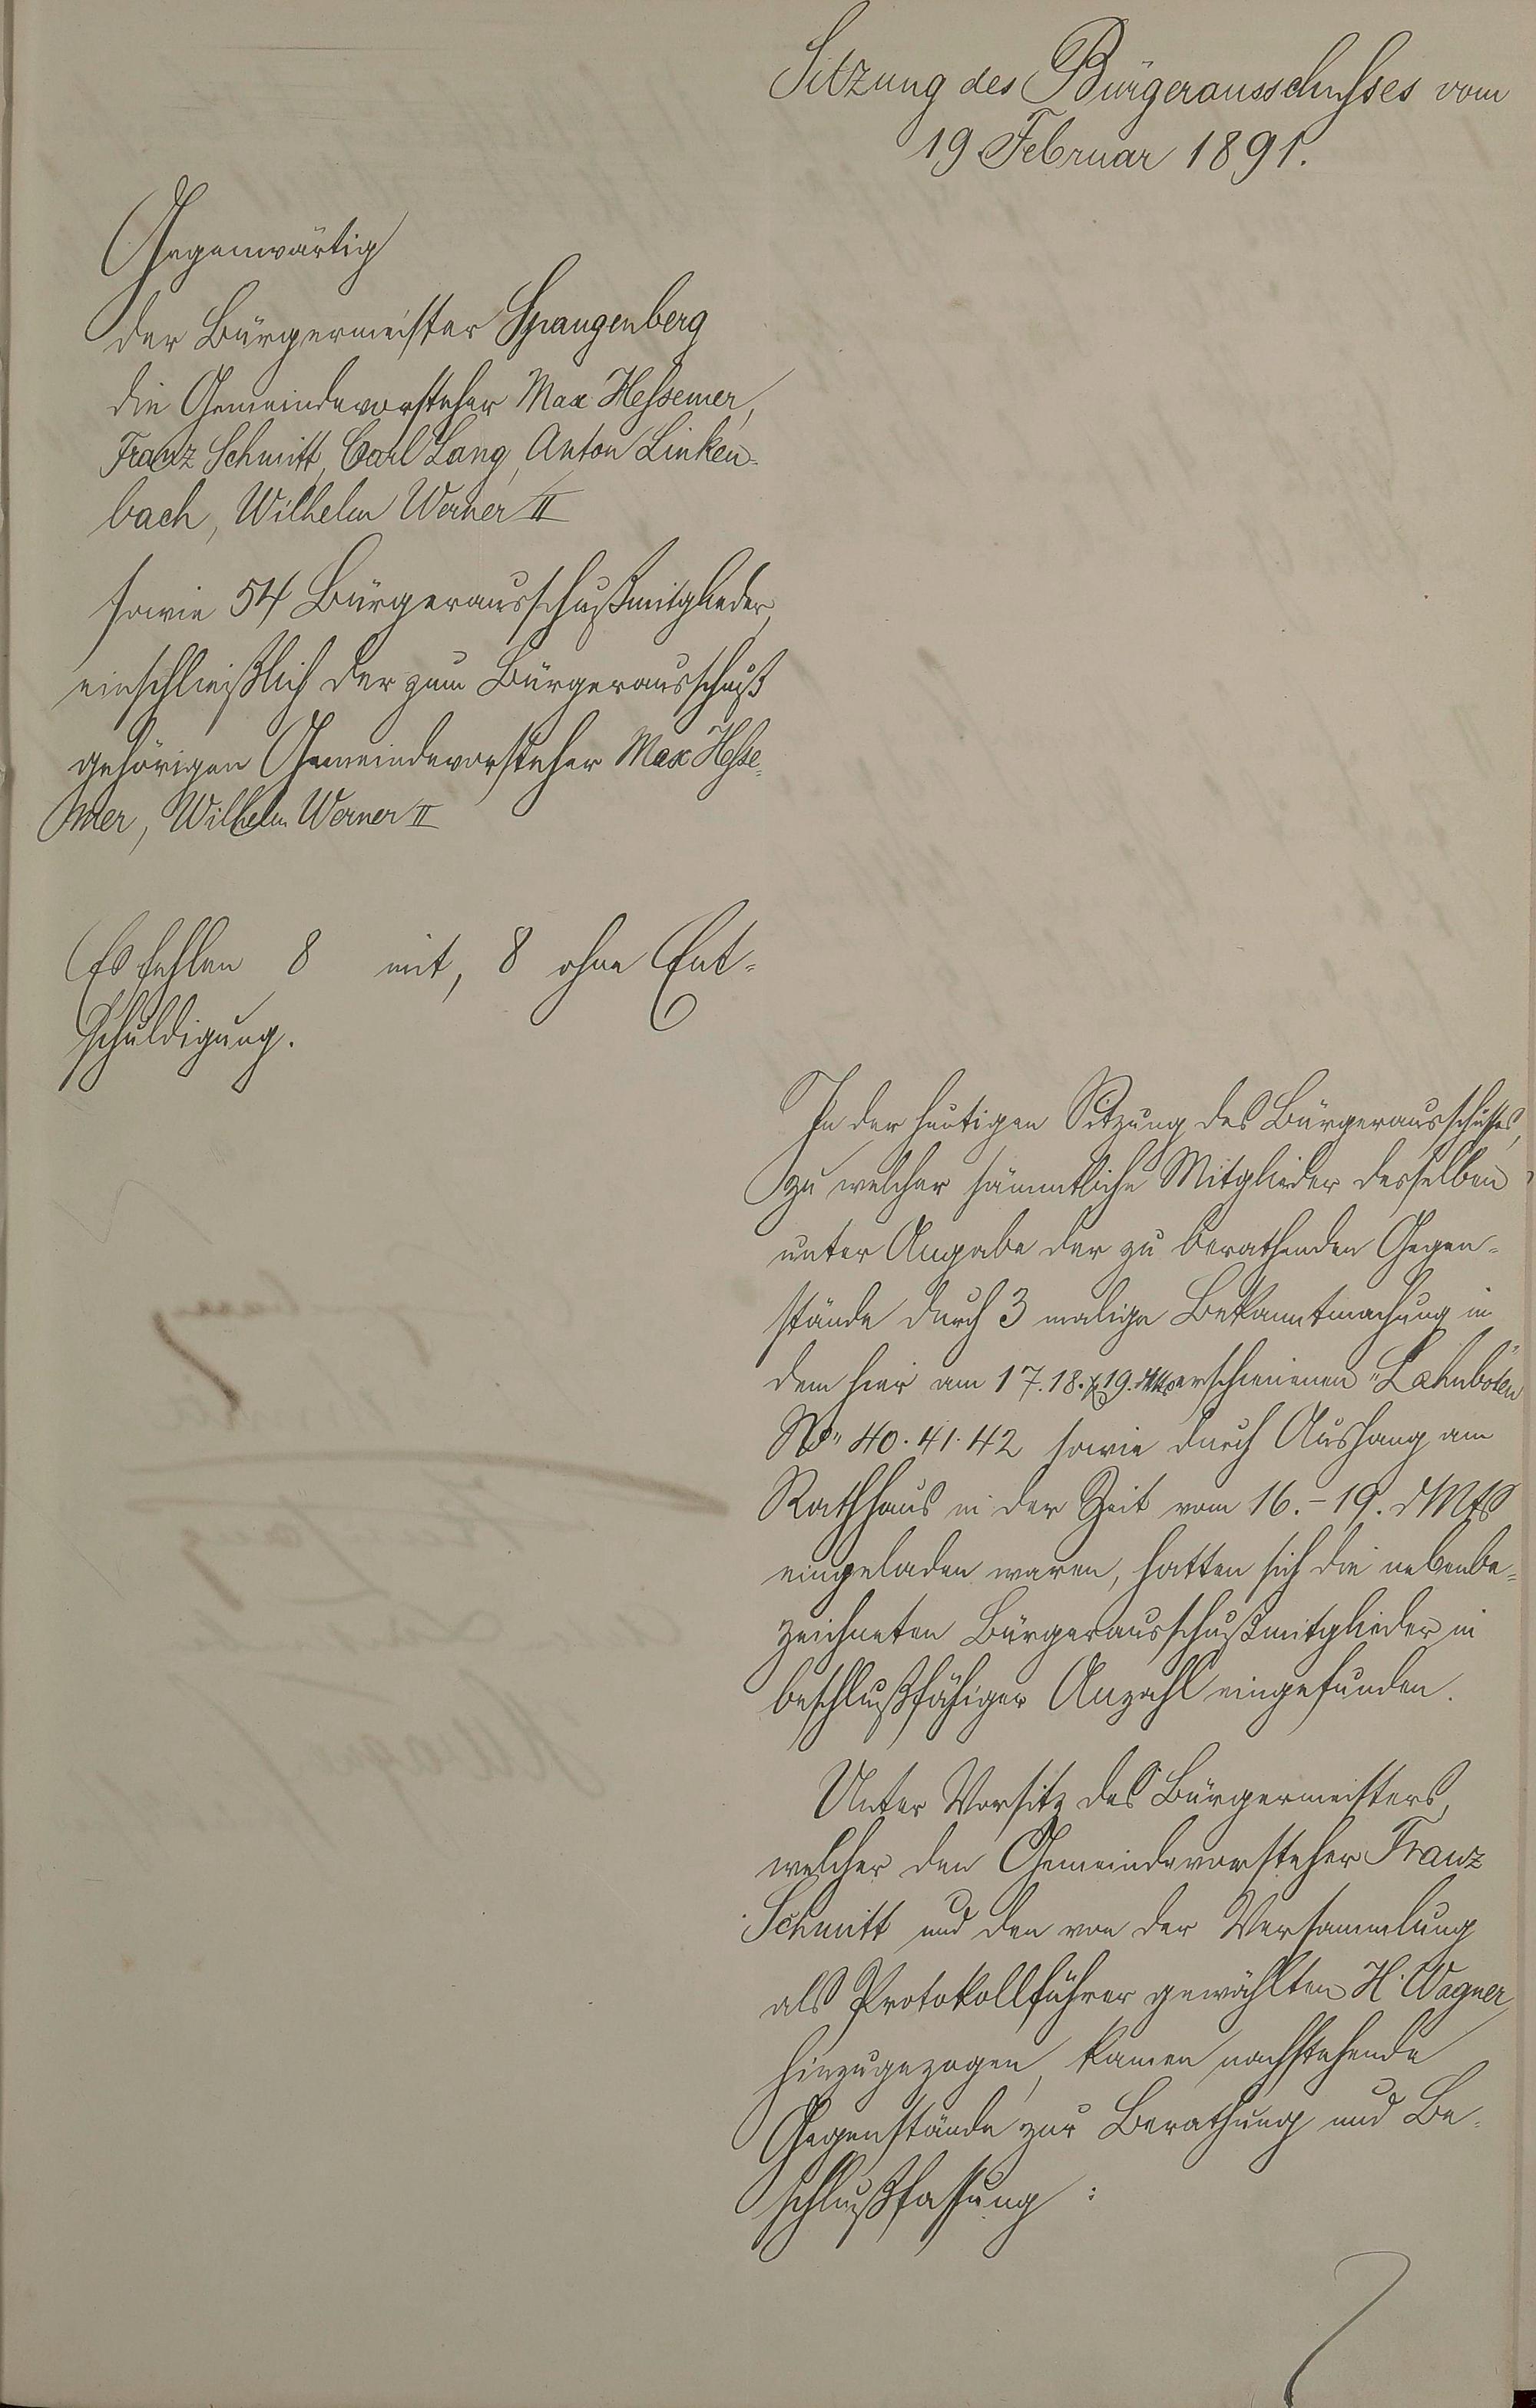 Sitzung des Bürgerausschusses vom
19 Februar 1891.
Gegenwärtig
der Bürgermeister Spangenberg
die Gemeindevorsteher Max Hessemer,
Franz Schmitt, Carl Lang, Anton Linken-
bach, Wilhelm Werner II
sowie 54 Bürgerausschußmitglieder,
einschließlich der zum Bürgerausschuß
gehörigen Gemeindevorsteher Max Hesse-
mer, Wilhelm Werner II
Es fehlen 8 mit, 8 ohne Ent-
schuldigung.
In der heutigen Sitzung des Bürgerausschusses,
zu welcher sämmtliche Mitglieder desselben
unter Angabe der zu berathenden Gegen-
stände durch 3 malige Bekanntmachung in
dem hier am 17. 18. & 19. dMts erschienenen "Lahnboten"
No 40. 41. 42 sowie durch Aushang am
Rathhaus in der Zeit vom 16.-19. dMts
eingeladen waren, hatten sich die nebenbe-
zeichneten Bürgerausschußmitglieder in
beschlußfähiger Anzahl eingefunden.
Unter Vorsitz des Bürgermeisters,
welcher den Gemeindevorsteher Franz
Schmitt und den von der Versammlung
als Protokollführer gewählten H. Wagner,
hinzugezogen, kamen nachstehende
Gegenstände zur Berathung und Be-
schlußfassung :